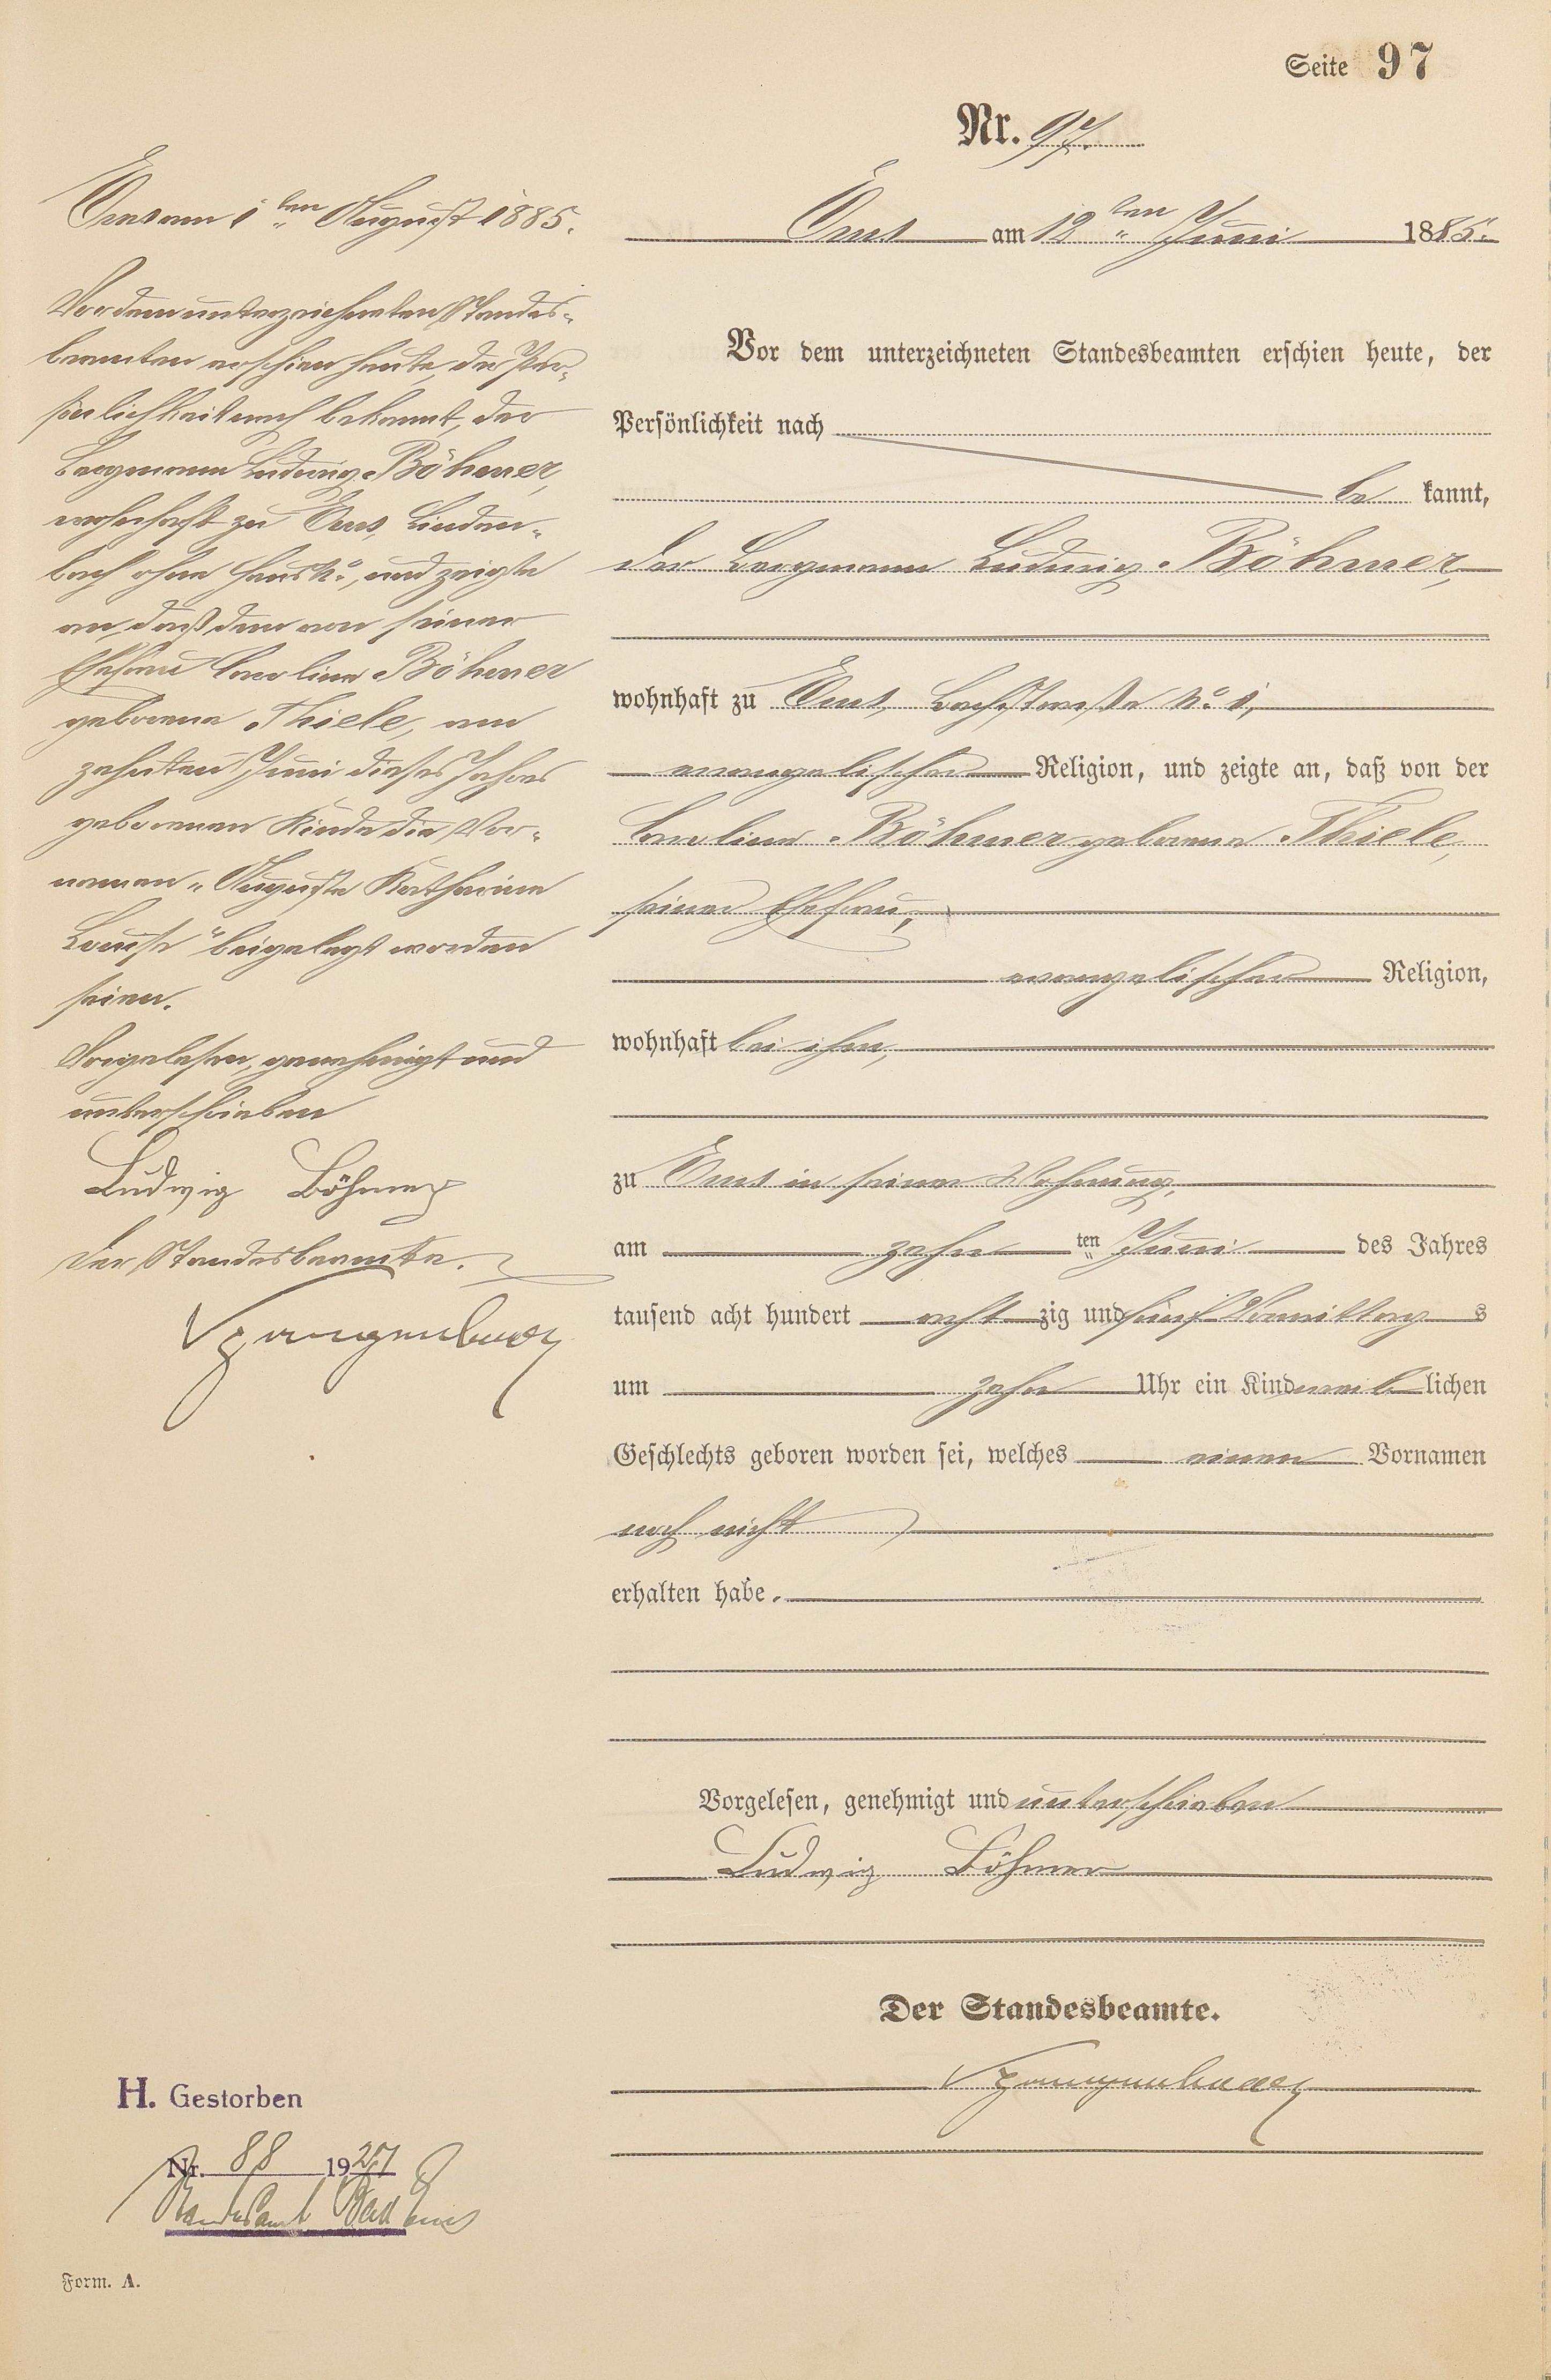 Seite 97
Nr. 97.
Ems am 12ten Juni 1885.
Vor dem unterzeichneten Standesbeamten erschien heute, der
Persönlichkeit nach
be kannt,
der Bergmann Ludwig Böhmer,
wohnhaft zu Ems, Bachstraße No. 1,
evangelischer Religion, und zeigte an, daß von der
Caroline Böhmer geborene Thiele,
seiner Ehefrau,
evangelischer Religion,
wohnhaft bei ihm,
zu Ems in seiner Wohnung,
am zehn ten Juni des Jahres
tausend acht hundert acht zig und fünf Vormittag s
um zehn Uhr ein Kind weib lichen
Geschlechts geboren worden sei, welches einen Vornamen
noch nicht
erhalten habe.
Vorgelesen, genehmigt und unterschrieben
Ludwig Böhmer
Der Standesbeamte.
Ems am 1ten August 1885.
Vor dem unterzeichneten Standes-
beamten erschien heute, der Per-
sönlichkeit nach bekannt, der
Bergmann Ludwig Böhmer,
wohnhaft zu Ems, Linden-
bach ohne Haus No., und zeigte
an, daß dem von seiner
Ehefrau Caroline Böhmer
geborene Thiele, am
zehnten Juni dieses Jahres
geborenen Kinde die Vor-
namen "Auguste Katharine
Louise" beigelegt worden
seien.
Vorgelesen, genehmigt und
unterschrieben
Ludwig Böhmer
Der Standesbeamte.
H. Gestorben
Nr. 88 1927
Standesamt Bad Ems
Form. A.